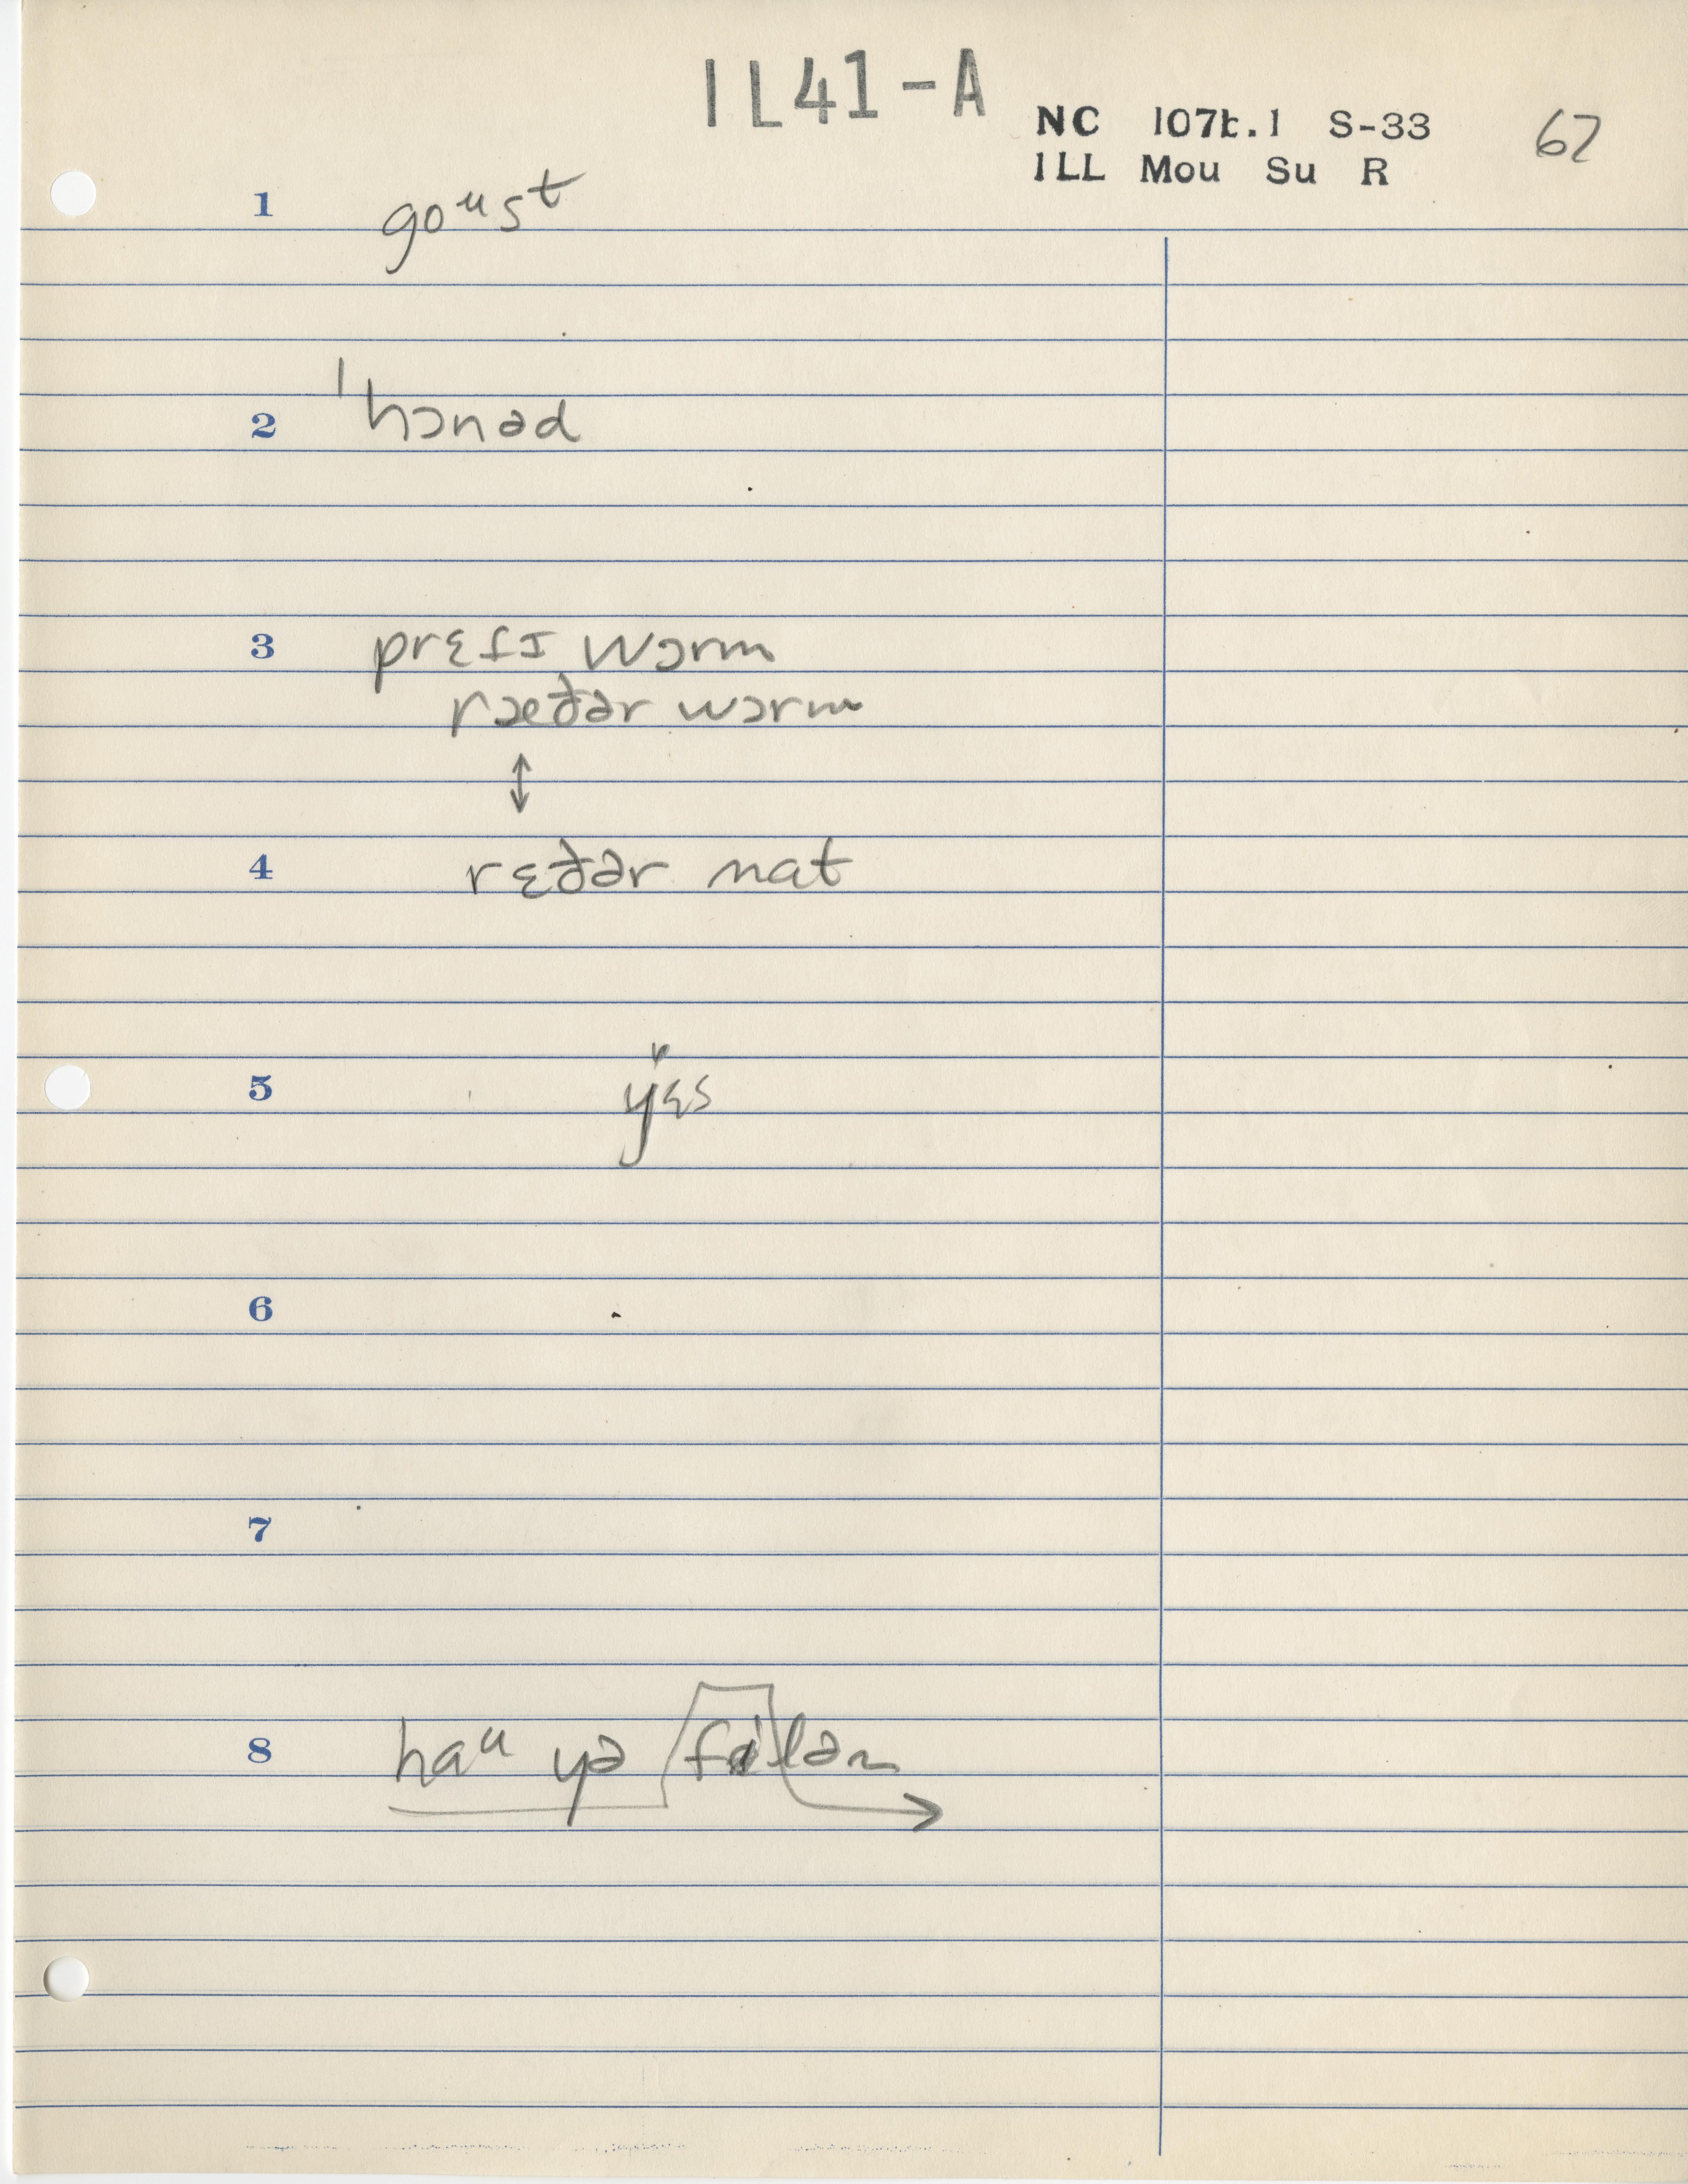 IL41-A
NC 107b.1 S-33 67
ILL Mou Su R
1 goᵘst
2 ˈhɔnəd
3 prɛſɪ wɔrm
ræðər wɔrm
↕
4 rɛðər nat
5 yɛs
6
7
8 haᵘ yə filən